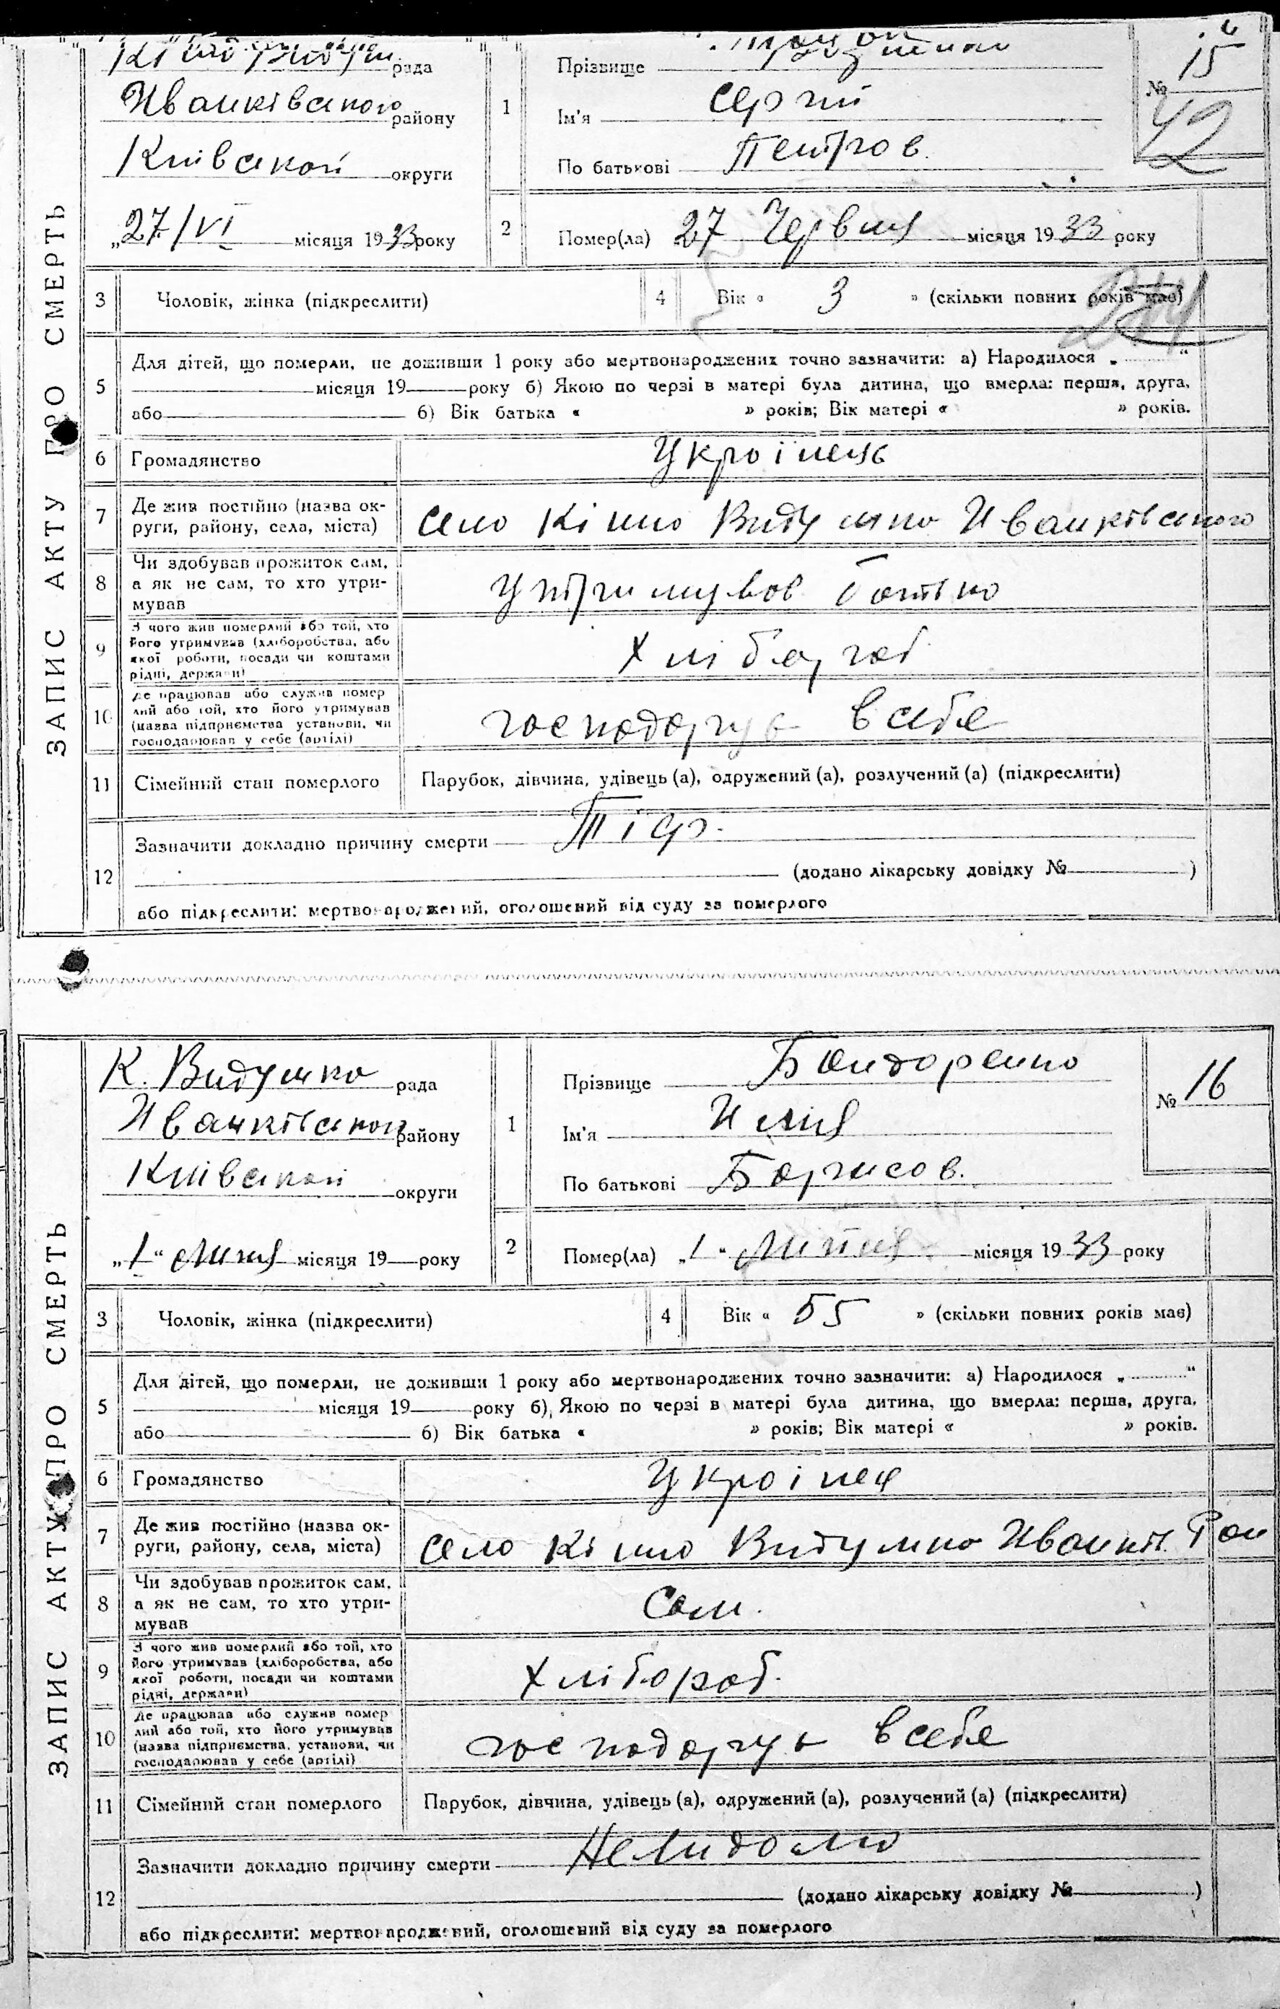 ЗАПИС АКТУ ПРО СМЕРТЬ
рада
Иванківського району
Київської округи
„27/VI місяця 1933 року
1
Прізвище
Ім'я Сергій
По батькові Петров.
№ 15
42
2
Помер(ла) 27 Червня місяця 1933 року
3 Чоловік, жінка (підкреслити)
4 Вік « 3 » (скільки повних років має)
5
Для дітей, що померли, не доживши 1 року або мертвонароджених точно зазначити: а) Народилося „ “
місяця 19 року б) Якою по черзі в матері була дитина, що вмерла: перша, друга,
або б) Вік батька « » років; Вік матері « » років.
6 Громадянство Україиець
7
Де жив постійно (назва ок-
руги, району, села, міста)
село Кішо Видумка Иванківського
8
Чи здобував прожиток сам,
а як не сам, то хто утри-
мував
утримував батько
9
З чого жив померлий або той, хто
його утримував (хліборобства, або
якої роботи, посади чи коштами
рідні, держави)
Хлібороб
10
Де працював або служив помер
лий або той, хто його утримував
(назва підприємства установи, чи
господарював у себе (артілі)
господарує в себе
11 Сімейний стан померлого Парубок, дівчина, удівець (а), одружений (а), розлучений (а) (підкреслити)
12
Зазначити докладно причину смерти
(додано лікарську довідку № )
або підкреслити: мертвонароджений, оголошений від суду за померлого
ЗАПИС АКТУ ПРО СМЕРТЬ
К. Видумка рада
Иванківської району
Київської округи
„1“ Липня місяця 19 року
1
Прізвище Бондаренко
Ім'я Илия
По батькові Борисов.
№ 16
2
Помер(ла) „1“ Липня місяця 1933 року
3 Чоловік, жінка (підкреслити)
4 Вік « 55 » (скільки повних років має)
5
Для дітей, що померли, не доживши 1 року або мертвонароджених точно зазначити: а) Народилося „ “
місяця 19 року б) Якою по черзі в матері була дитина, що вмерла: перша, друга,
або б) Вік батька « » років; Вік матері « » років.
6 Громадянство
7
Де жив постійно (назва ок-
руги, району, села, міста)
село Кішо Видумка Иванків. Рай
8
Чи здобував прожиток сам,
а як не сам, то хто утри-
мував
Сам.
9
З чого жив померлий або той, хто
його утримував (хліборобства, або
якої роботи, посади чи коштами
рідні, держави)
Хлібороб.
10
Де працював або служив помер
лий або той, хто його утримував
(назва підприємства, установи, чи
господарював у себе (артілі)
господарує в себе
11 Сімейний стан померлого Парубок, дівчина, удівець (а), одружений (а), розлучений (а) (підкреслити)
12
Зазначити докладно причину смерти Невидомо
(додано лікарську довідку № )
або підкреслити: мертвонароджений, оголошений від суду за померлого